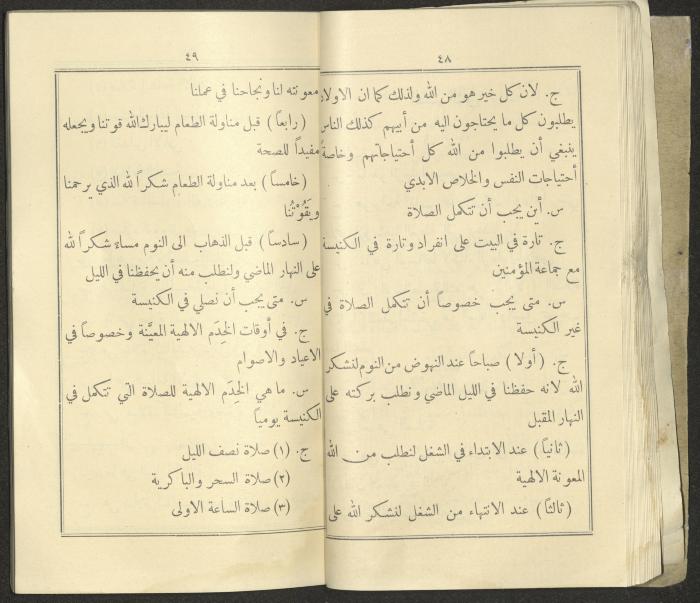 ٤٨
ج. لان كل خير هو من الله ولذلك كما ان الاولاد
يطلبون كل ما يحتاجون اليه من أبيهم كذلك الناس
ينبغي أن يطلبوا من الله كل أحتياجاتهم وخاصة
أحتياجات النفس والخلاص الابدي
س. أين يجب أن تتكمل الصلاة
ج. تارة في البيت على انفراد وتارة في الكنيسة
مع جماعة المؤمنين
س. متى يجب خصوصاً أن تتكمل الصلاة في
غير الكنيسة
ج. (أولا) صباحاً عند النهوض من النوم لنشكر
الله لانه حفظنا في الليل الماضي ونطلب بركته على
النهار المقبل
(ثانياً) عند الابتداء في الشغل لنطلب من الله
المعونة الالهية
(ثالثاً) عند الانتهاء من الشغل لنشكر الله على
٤٩
معونته لنا ونجاحنا في عملنا
(رابعاً) قبل مناولة الطعام ليبارك الله قوتنا ويجعله
مفيداً للصحة
(خامساً) بعد مناولة الطعام شكراً لله الذي يرحمنا
ويَقُوْتُنا
(سادساً) قبل الذهاب الى النوم مساء شكراً لله
على النهار الماضي ولنطلب منه أن يحفظنا في الليل
س. متى يجب أن نصلي في الكنيسة
ج. في أوقات الخِدَم الالهية المعيَّنة وخصوصاً في
الاعياد والاصوام
س. ما هي الخِدَم الالهية للصلاة التي تتكمل في
الكنيسة يومياً
ج. (١) صلاة نصف الليل
(٢) صلاة السحر والباكرية
(٣) صلاة الساعة الاولى